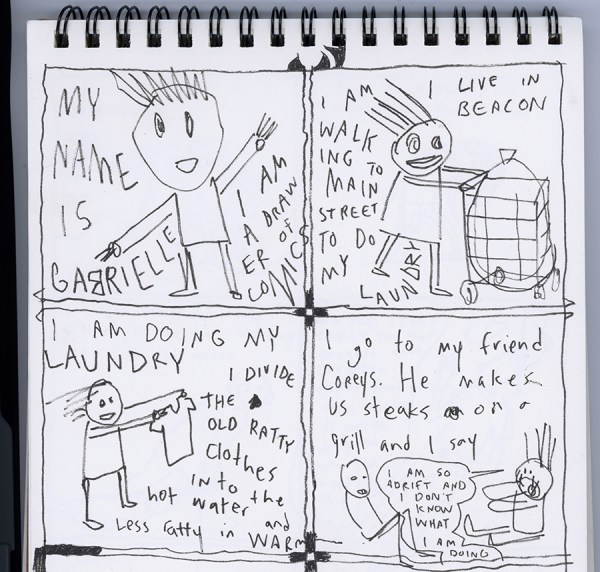 MY
NAME
IS
GABRIELLE
I AM
A DRAW
ER OF
COMICS
I AM
WALK
ING TO
MAIN
STREET
TO DO
MY
LAUNDRY
I LIVE IN
BEACON
I AM DOING MY
LAUNDRY
I DIVIDE
THE
OLD RATTY
Clothes
INto the
hot water and
Less ratty in WARM
I go to my friend
Coreys. He makes
us steaks on a
grill and I say
I AM SO
ADRIFT AND
I DON'T
KNOW
WHAT
I AM
DOING